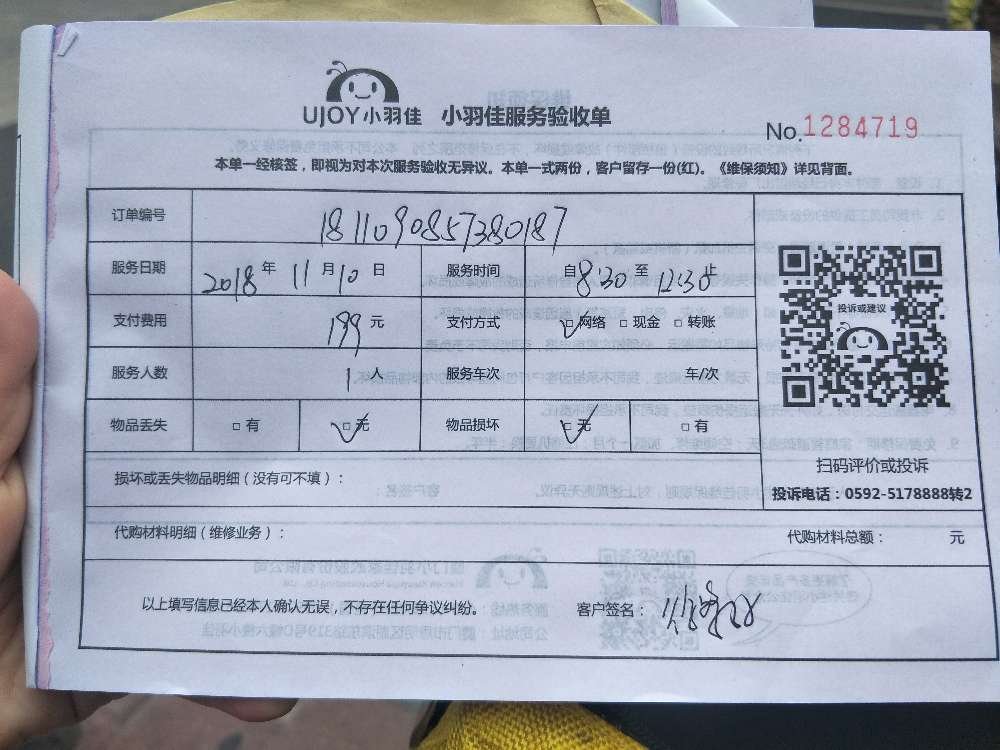 UJOY小羽佳 小羽佳服务验收单
No.1284719
本单一经核签，即视为对本次服务验收无异议。本单一式两份，客户留存一份(红)。《维保须知》详见背面。
订单编号 1811090857380187
服务日期 2018年 11月10日 服务时间 自8:30至12:30止
支付费用 199元 支付方式 □网络 □现金 □转账
投诉或建议
服务人数 1人 服务车次 车/次
物品丢失 □有 □无 物品损坏 □无 □有
扫码评价或投诉
投诉电话：0592-5178888转2
损坏或丢失物品明细（没有可不填）：
代购材料明细（维修业务）： 代购材料总额： 元
以上填写信息已经本人确认无误，不存在任何争议纠纷。 客户签名：